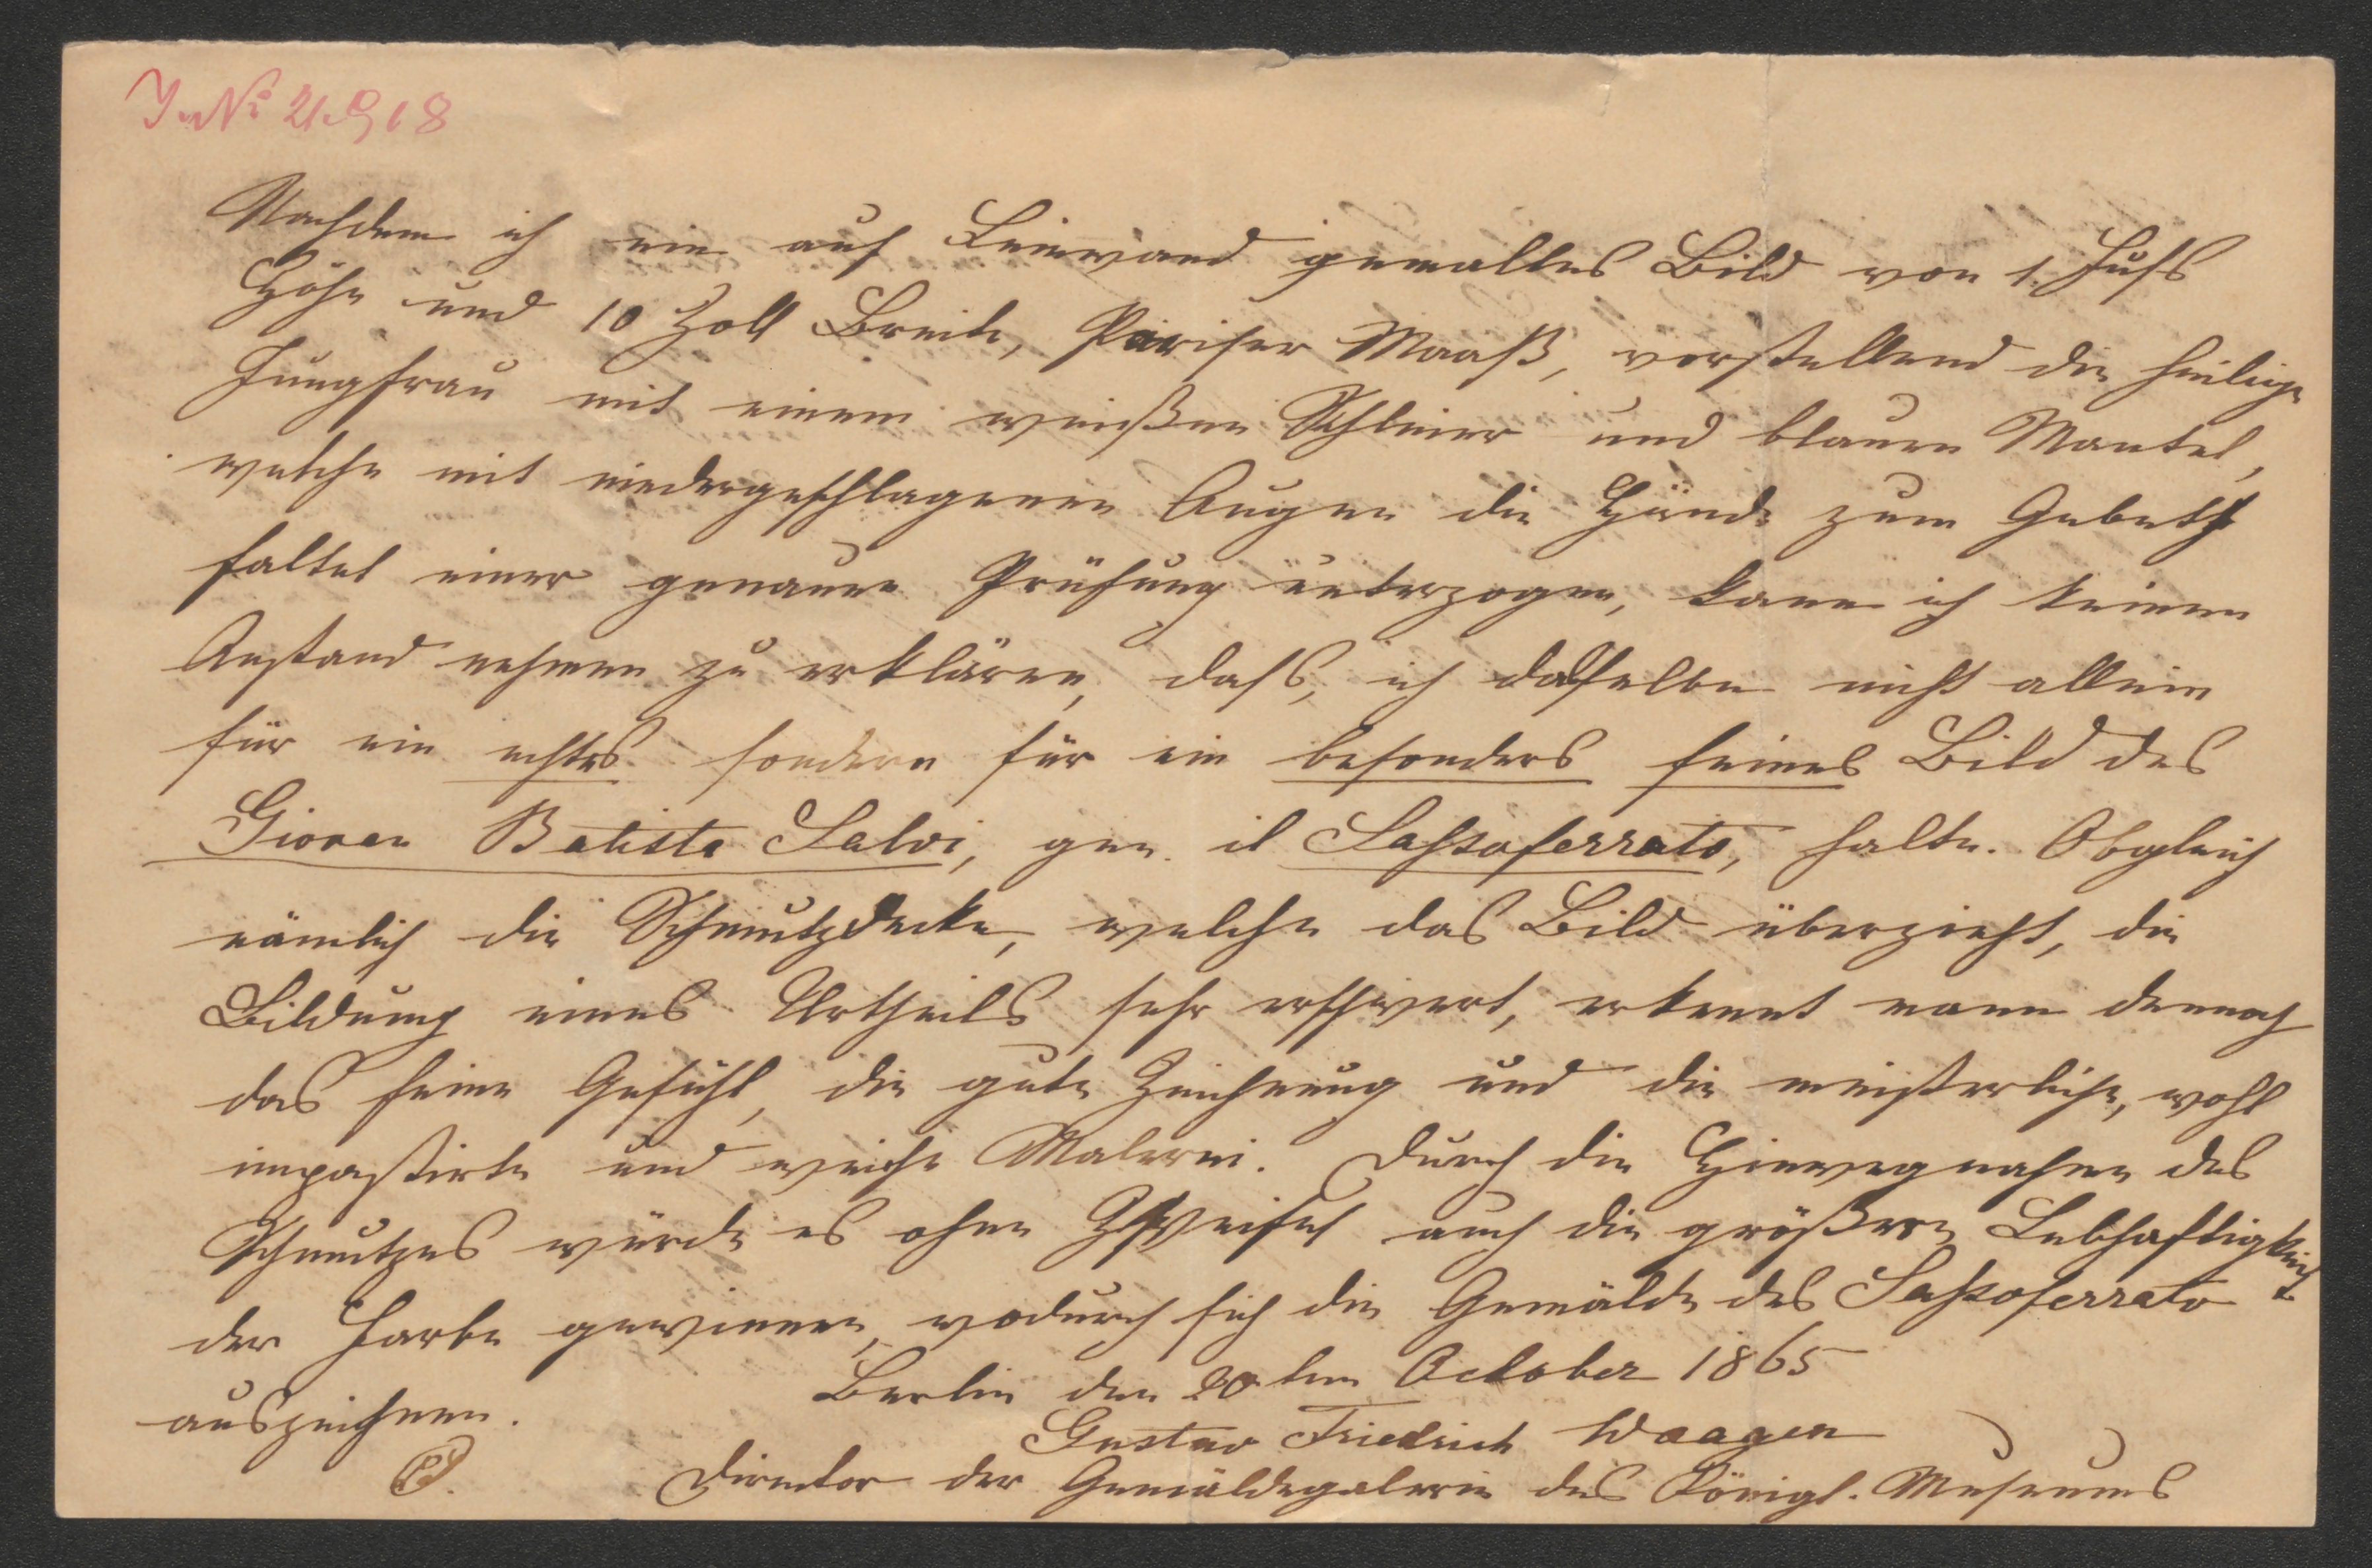 J. No 21.918
Nachdem ich ein auf Leinwand gemaltes Bild von 1. Fuſs
Höhe und 10 Zoll Breite, Pariser Maaß, vorstellend die heilige
Jungfrau mit einem weißen Schleier und blauen Mantel,
welche mit niedergeschlagenen Augen die Hände zum Gebeth
faltet einer genauen Prüfung unterzogen, kann ich keinen
Anstand nehmen zu erklären, daſs, ich dasselbe nicht allein
für ein echtes sondern für ein besonders feines Bild des
Giovan Batista Salvi, gen. il Saſsoferrato, halte. Obgleich
nämlich die Schmutzdecke, welche das Bild überzieht, die
Bildung eines Urtheils sehr erschwert, erkennt mann dennoch
das feine Gefühl, die gute Zeichnung und die meisterliche, wohl
impastirte und weiche Malerei. Durch die Hinwegnahme des
Schmutzes würde es ohne Zweifel auch die größere Lebhaftigkeit
der Farbe gewinnen, wodurch sich die Gemälde des Saſsoferrato
auszeichnen.
Berlin den 20ten October 1865
Gustav Friedrich Waagen
Director der Gemäldegalerie des Königl. Museums